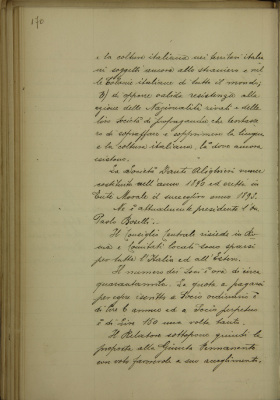 170
e la coltura italiana nei territori italia
ni soggetti ancora allo straniero e nel
le Colonie italiane di tutto il mondo;
B) di opporre valida resistenza alla
azione delle Nazionalità rivali e delle
loro Società di propaganda che tentasse
ro di sopraffare e sopprimere la lingua
e la coltura italiana là dove ancora
esistono.
La Società Dante Alighieri venne
costituita nell'anno 1890 ed eretta in
Ente Morale il successivo anno 1893.
Ne è attualmente presidente l'On
Paolo Boselli.
Il Consiglio Centrale risiede in Ro
ma e Comitati locali sono sparsi
per tutta l'Italia ed all'Estero.
Il numero dei soci è ora di circa
quarantamila. La quota a pagarsi
per essere iscritto a Socio ordinario è
di Lire 6 annue ed a Socio perpetuo
è di Lire 150 una volta tanto.
Il Relatore sottopone quindi la
proposta alla Giunta Permanente
con voto favorevole a suo accoglimento.